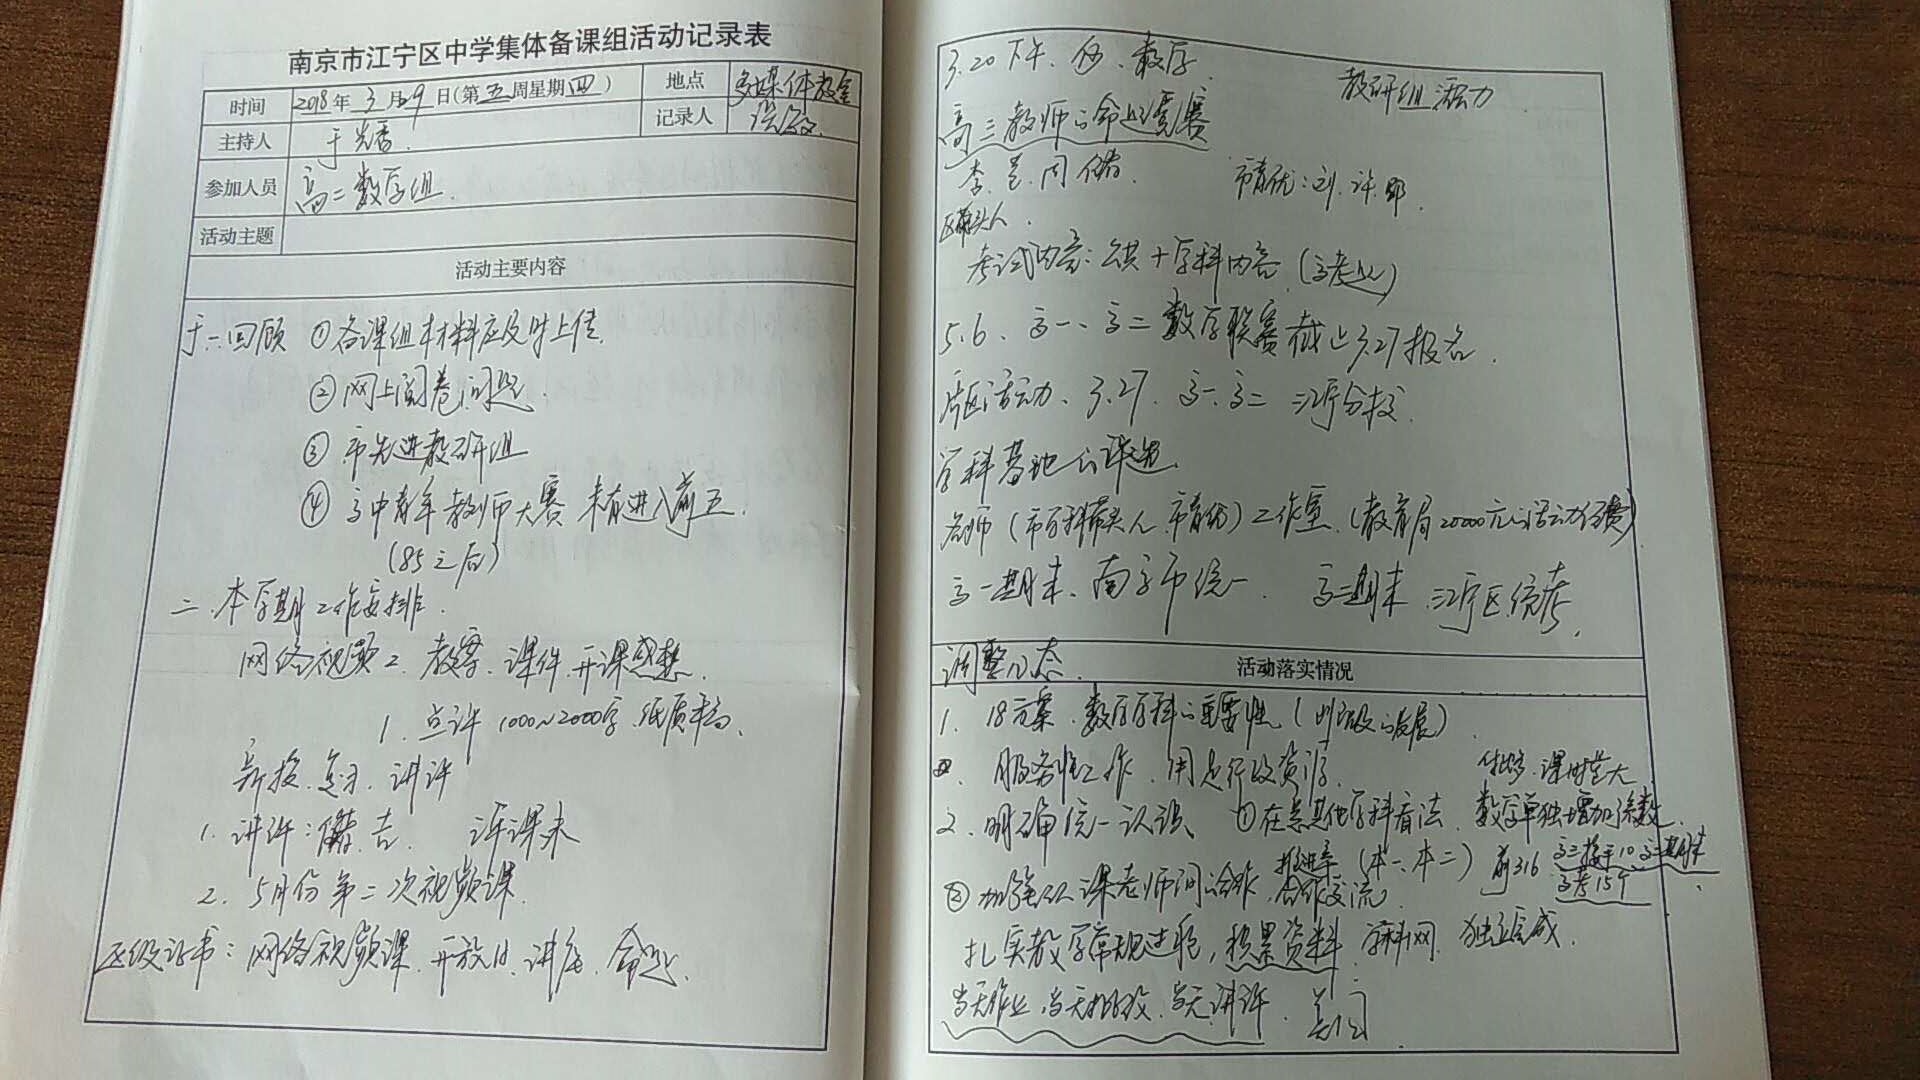 南京市江宁区中学集体备课组活动记录表
时间 2018年3月29日(第五周星期四) 地点 多媒体教室
主持人 于 记录人
参加人员 高二数学组.
活动主题
活动主要内容
于:一.回顾 ①备课组材料应及时上传.
②网上阅卷问题.
③ 市先进教研组
④ 高中青年教师大赛 未有进入前五.
(85之后)
二.本学期工作安排.
网络视频2. 教案.课件.开课感想.
1. 点评 1000~2000字.纸质稿、
新授.复习.讲评
1. 讲评: 评课未
2. 5月份第二次视频课.
区级证书:网络视频课.开放日.讲座.命题.
3.20下午. 数学.
教研组活动
高三教师的命题竞赛
李 周
市青优:刘.许.郭.
区带头人.
考试内容: 公共+学科内容(高考题)
5.6、高一、高二数学联赛 截止3.27报名.
片区活动、3.27. 高一.高二 江宁分校.
学科基地的评选.
名师(市学科带头人.市青优)工作室.(教育局20000元的活动经费)
高一期末、南京市统一. 高二期末 江宁区统考.
调整心态.
活动落实情况
1. 18方案.数学学科的重要性( 的发展).
服务性工作.用足行政资源.
作业多.课时量大.
2. 明确统一认识、①在意其他学科看法. 数学单独增加了系数.
推进率(本一.本二) 前316 高三接手10.高三期末
高考15个
②加强 课老师间的合作.合作交流.
扎实教学常规过程,积累资料.学科网.独立完成.
当天作业.当天批改.当天讲评.